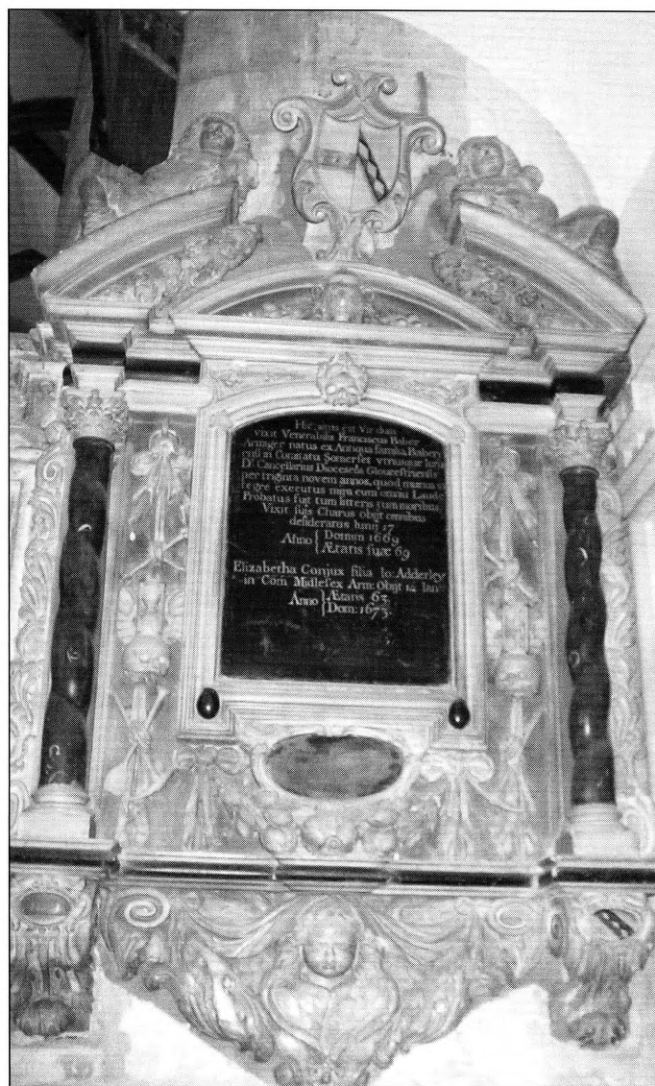 Hic situs est Vir dum
vixit Venerabilis Franciscus Baber
Armiger natus ex Antiqua familia Baberi
ensi in Comitatu Somerset utriusque Juris
Dr. Cancellarius Diocesews Gloucestriensis
per triginta novem annos, quod munus
executus omni Laude
Probatus fuit tum litteris tum moribus
Vixit suis Charus obijt omnibus
desideratus Junij 17
Anno { Domini 1669
{ Ætatis suæ 69
Elizabetha Conjux filia Io: Adderley
in Com Midlesex Arm: Obijt 14 Jan
Anno { Ætatis 63
{ Dom: 1673